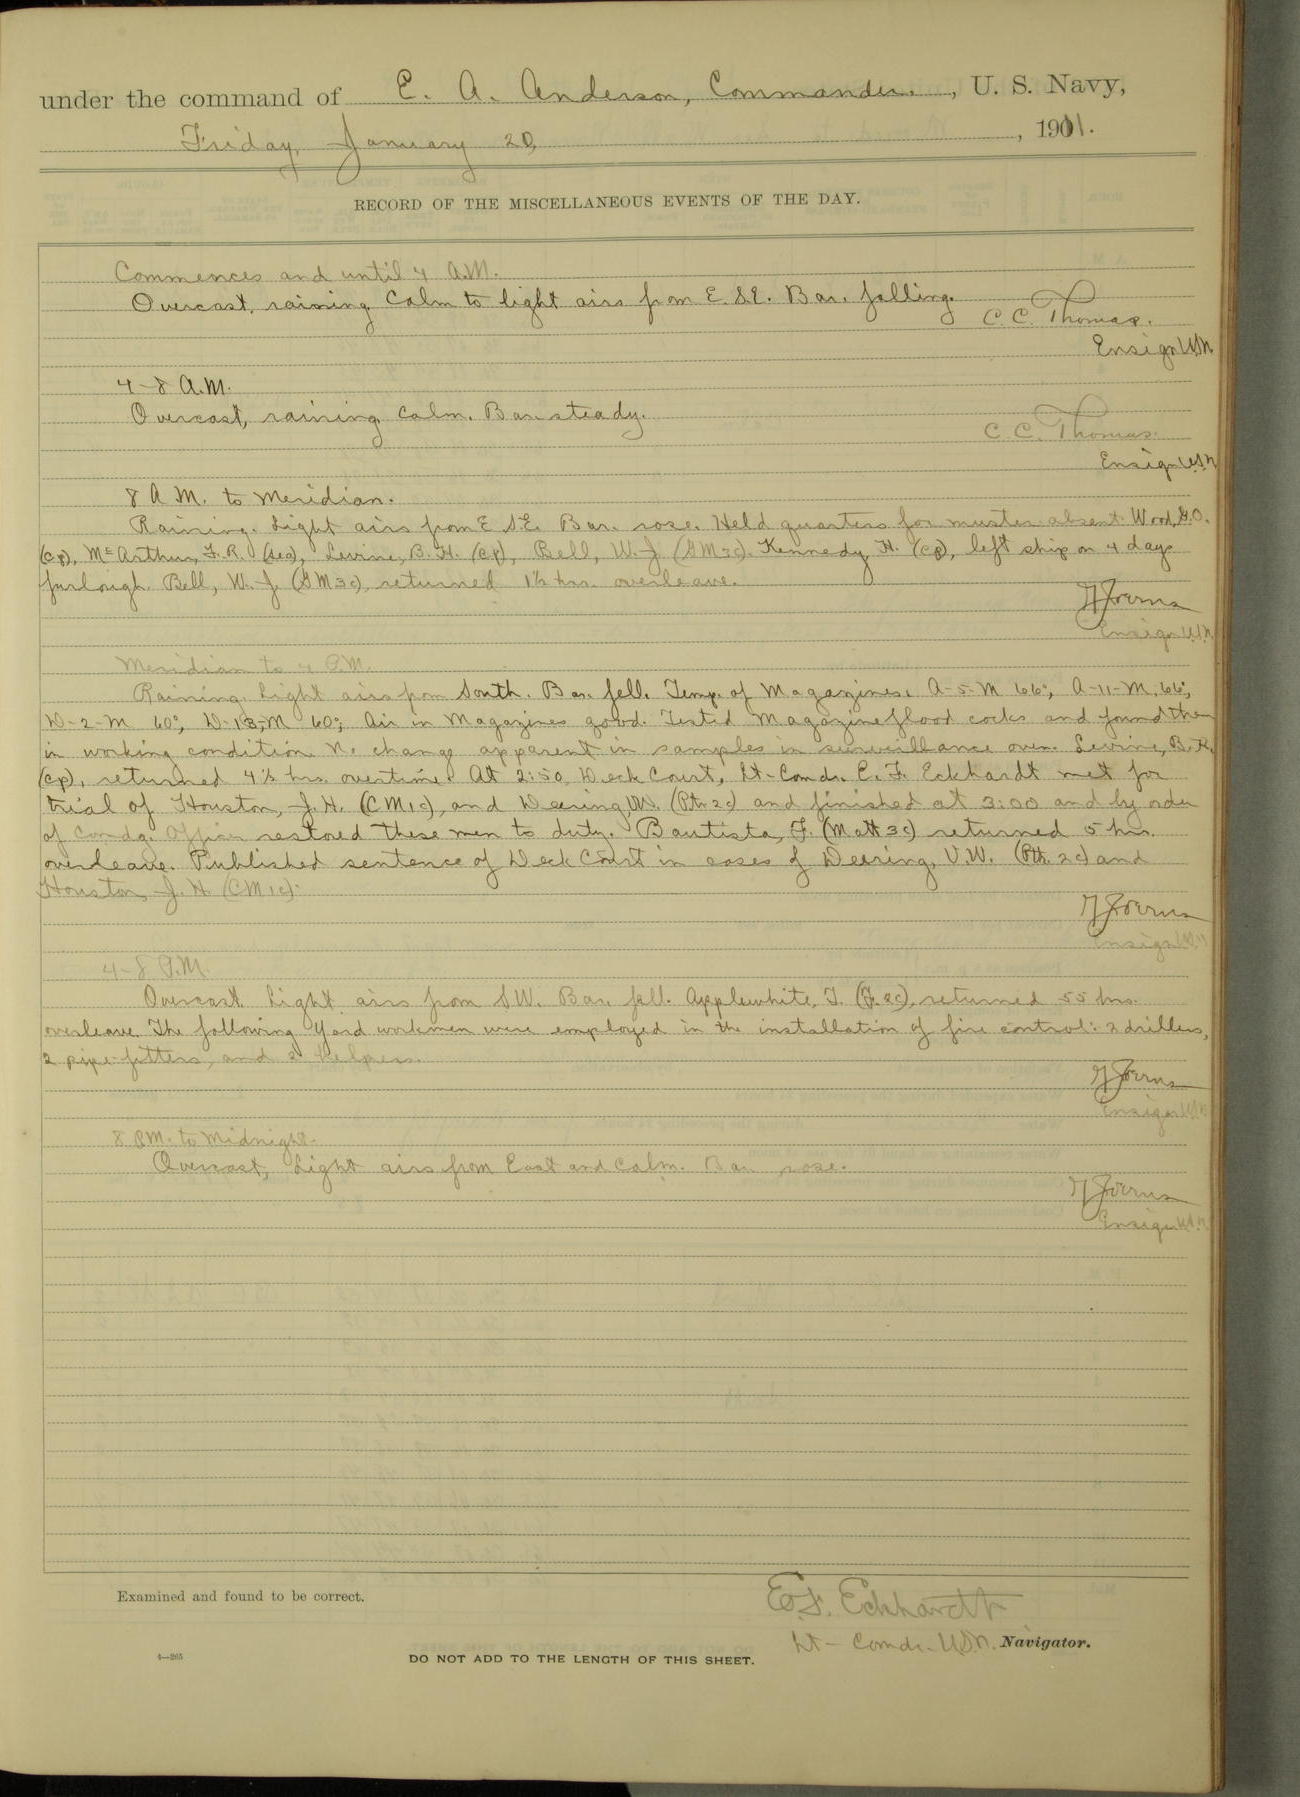 under the command of E. A. Anderson, Commander, U. S. Navy,
Friday, January 20, 1911.
RECORD OF THE MISCELLANEOUS EVENTS OF THE DAY.
Commences and until 4 A.M.
Overcast, raining Calm to light airs from E.S.E. Bar. falling.
C. C. Thomas.
Ensign U.S.N.
4-8 A.M.
Overcast, raining Calm. Bar. steady.
C. C. Thomas.
Ensign U.S.N.
8 A.M. to Meridian.
Raining. Light airs from E.S.E. Bar. rose. Held quarters for muster absent Wood, G.O.
(cp), McArthur, F.R. (sea), Levine, B.H. (cp), Bell, W.J. (GM3c). Kennedy, H. (cp), left ship on 4 days
furlough. Bell, W.J. (GM3c), returned 1½ hrs. overleave.
Ensign U.S.N.
Meridian to 4 P.M.
Raining, light airs from South. Bar. fell. Temp. of Magazines. A-5-M 66°, A-11-M, 66°,
D-2-M 60°, D-13-M 60°; Air in Magazines good. Tested Magazine flood cocks and found them
in working condition. No change apparent in samples in surveillance oven. Levine, B.H.
(cp), returned 4½ hrs. overtime. At 2:50, Deck Court, Lt-Comdr. E. F. Eckhardt met for
trial of Houston, J.H. (CM1c), and Deering, V.W. (Ptr 2c) and finished at 3:00 and by order
of Comdg. Officer restored these men to duty. Bautista, F. (Matt 3c) returned 5 hrs.
overleave. Published sentence of Deck Court in cases of Deering, V.W. (Ptr. 2c) and
Houston, J.H. (CM1c).
Ensign U.S.N.
4-8 P.M.
Overcast. Light airs from S.W. Bar. fell. Applewhite, T. (F.2c), returned 55 hrs.
overleave. The following yard workmen were employed in the installation of fire control: 2 drillers,
2 pipe-fitters, and 2 helpers.
Ensign U.S.N.
8 P.M. to Midnight.
Overcast, Light airs from East and Calm. Bar. rose.
Ensign U.S.N.
Examined and found to be correct.
E. F. Eckhardt
Lt-Comdr. U.S.N. Navigator.
4—265
DO NOT ADD TO THE LENGTH OF THIS SHEET.